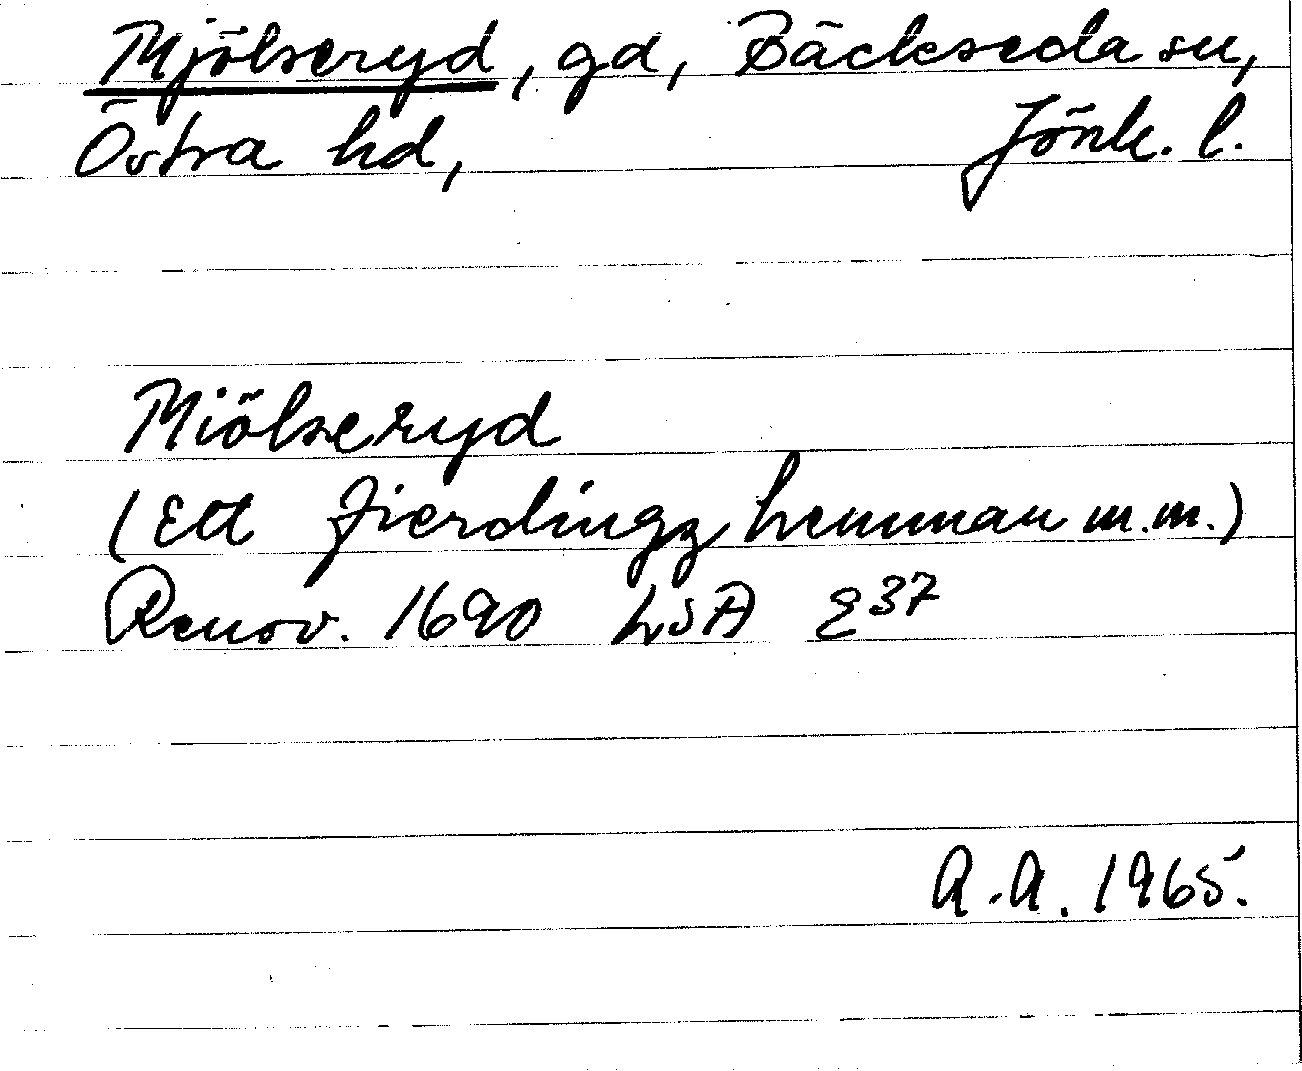 Mjölseryd, gd, Bäckseda sn,
Östra hd, Jönk. l.
Miölseryd
(Ett fierdingz hemman m.m.)
Renov. 1690 LSA E37
A.A. 1965.